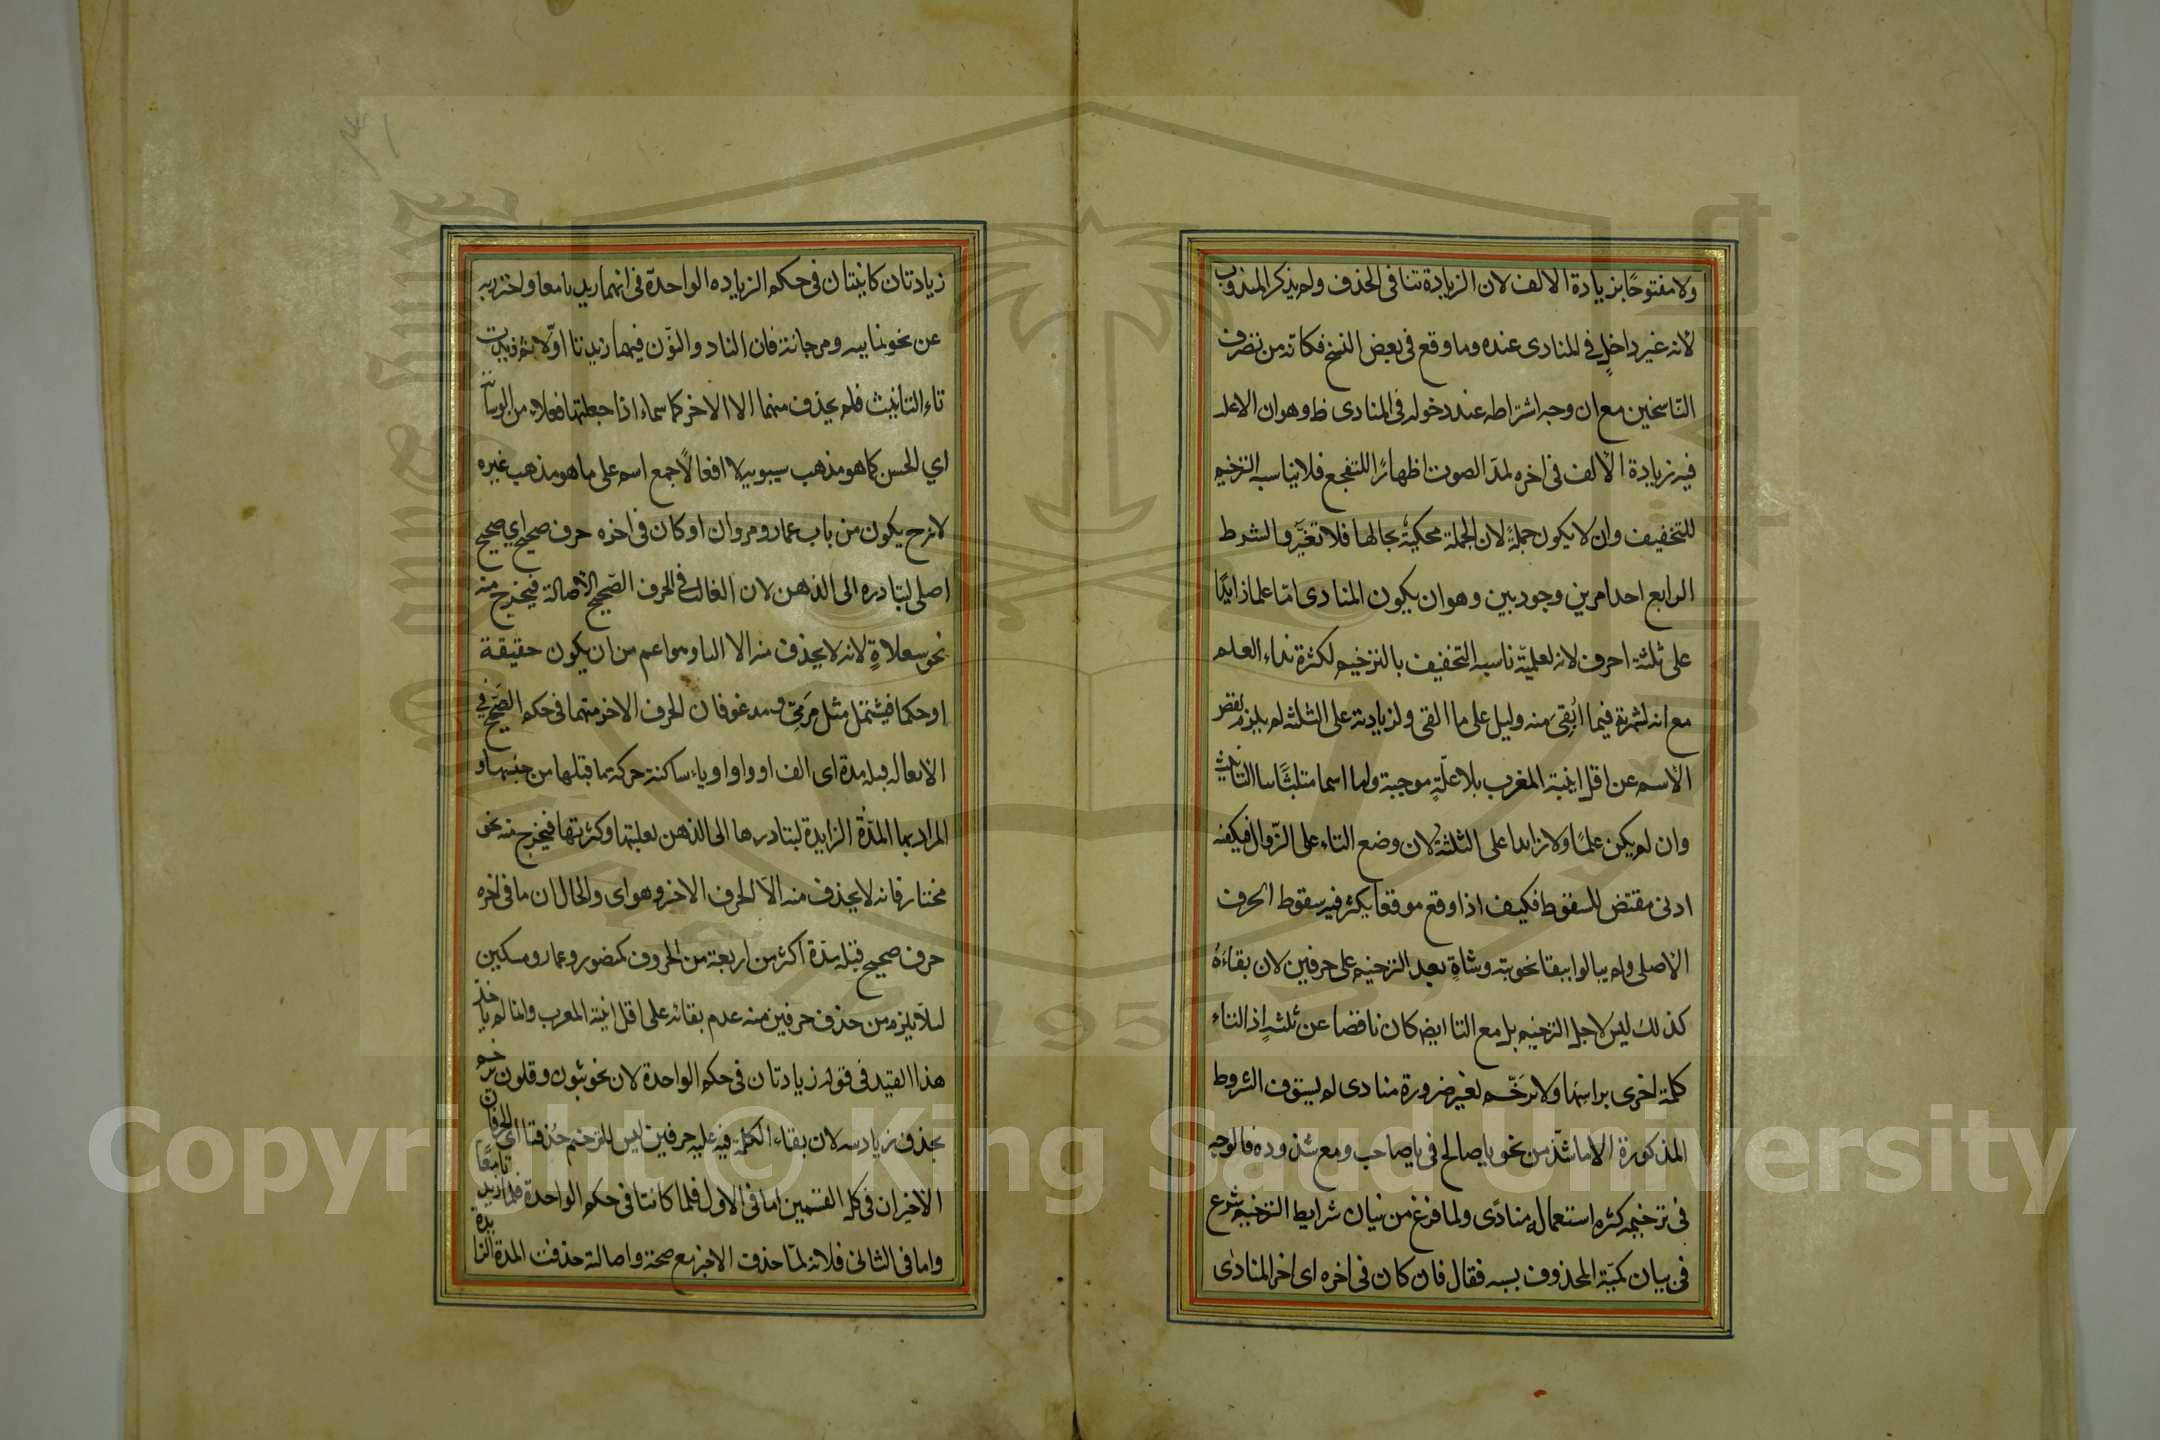 ولا مفتوحًا بزيادة الالف لان الزيادة تنافى الحذف ولم يذكر المندوب
لانه غير داخلٍ في المنادى عنده وما وقع فى بعض النسخ فكانه من تصرف
الناسخين مع ان وجه اشتراطه عند دخوله فى المنادى ظ وهو ان الاغلـ
فيه زيادة الالف فى اخره لمدّ الصوت اظهارًا للتفجع فلا يناسبه الترخيم
للتخفيف وان لا يكون جملةً لان الجملة محكيةٌ بحالها فلا تغيَّر والشرط
الرابع احد امرين وجوديين وهو ان يكون المنادى امّا علما زايدًا
على ثلثة احرف لانه لعلميّة ناسبه التخفيف بالترخيم لكثرة نداء العلم
مع انه لشهرته فيما اُبقى منه دليل على ما القى ولزيادته على الثلثة لم يلزم نقص
الاسم عن اقل ابنية المعرب بلا علّةٍ موجبة واما اسما متلبّسًا بتاء التانيث
وان لم يكن علمًا ولا زايدا على الثلثة لان وضع التاء على الزّوال فيكفيه
ادنى مقتض للسقوط فكيف اذا وقع موقعا يكثر فيه سقوط الحرف
الاصلى ولم يبالوا ببقا نحو ثبة وشاةٍ بعد الترخيم على حرفين لان بقاءهُ
كذلك ليس لاجل الترخيم بل مع التا ايض كان ناقصا عن ثلثةٍ اذ التاء
كلمة اخرى براسها ولا يرخّم لغير ضرورة منادى لم يستوف الشروط
المذكورة الا ما شذّ من نحو يا صالح فى يا صاحب ومع شذوذه فالوجه
فى ترخيمه كثرة استعماله منادًى ولما فرغ من بيان شرايط الترخيم شرع
فى بيان كميّة المحذوف بسببه فقال فان كان فى اخره اى اخر المنادى
زيادتان كاينتان فى حكم الزيادة الواحدة فى انهما زيدتا معا واحترز به
عن نحو ثمانية ومرجانة فان الياء والنّون فيهما زيدتا اوّلا ثم زيدت
تاء التانيث فلم يحذف منهما الا الاخر كاسماء اذا جعلتها فعلاء من الوسامة
اي الحسن كما هو مذهب سيبويه لا افعالًا جمع اسم على ما هو مذهب غيره
لانه ح يكون من باب عمار ومروان او كان فى اخره حرف صحيح اي صحيح
اصلى لتبادره الى الذهن لان الغالب فى الحرف الصّحيح الاصالة فيخرج منه
نحو سعلاةٍ لانه لا يحذف منه الا التاء وهو اعم من ان يكون حقيقة
او حكما فيشتمل مثل مَرمِىّ ومدعو فان الحرف الاخر منهما فى حكم الصّحيح فى
الاصالة قبله مدة اى الف او واو او ياء ساكنة حركة ما قبلها من جنسها و
المراد بها المدّةُ الزايدة لتبادرها الى الذهن لغلبتها وكثرتها فيخرج منه نحو
مختار فانه لا يحذف منه الاّ الحرف الاخر وهو اى والحال ان ما فى اخره
حرف صحيح قبله مدّة اكثر من اربعة من الحروف كمنصور وعمار ومسكين
لئلا يلزم من حذف حرفين منه عدم بقائه على اقل ابنية المعرب وانما لم ياخذ
هذا القيد فى قوله زيادتان فى حكم الواحدة لان نحو ثبون وقلون يرخم
بحذف زيادتيه لان بقاء الكلمة فيه على حرفين ليس للترخيم حُذفتا اى الحرفان
الاخيران فى كلا القسمين اما فى الاول فلما كانتا فى حكم الواحدة فلما زيدتا معًا
واما فى الثانى فلانه لمّا حذف الاخير مع صحته واصالته حذفت المدة الزايدة
Copyright © King Saud University
1957